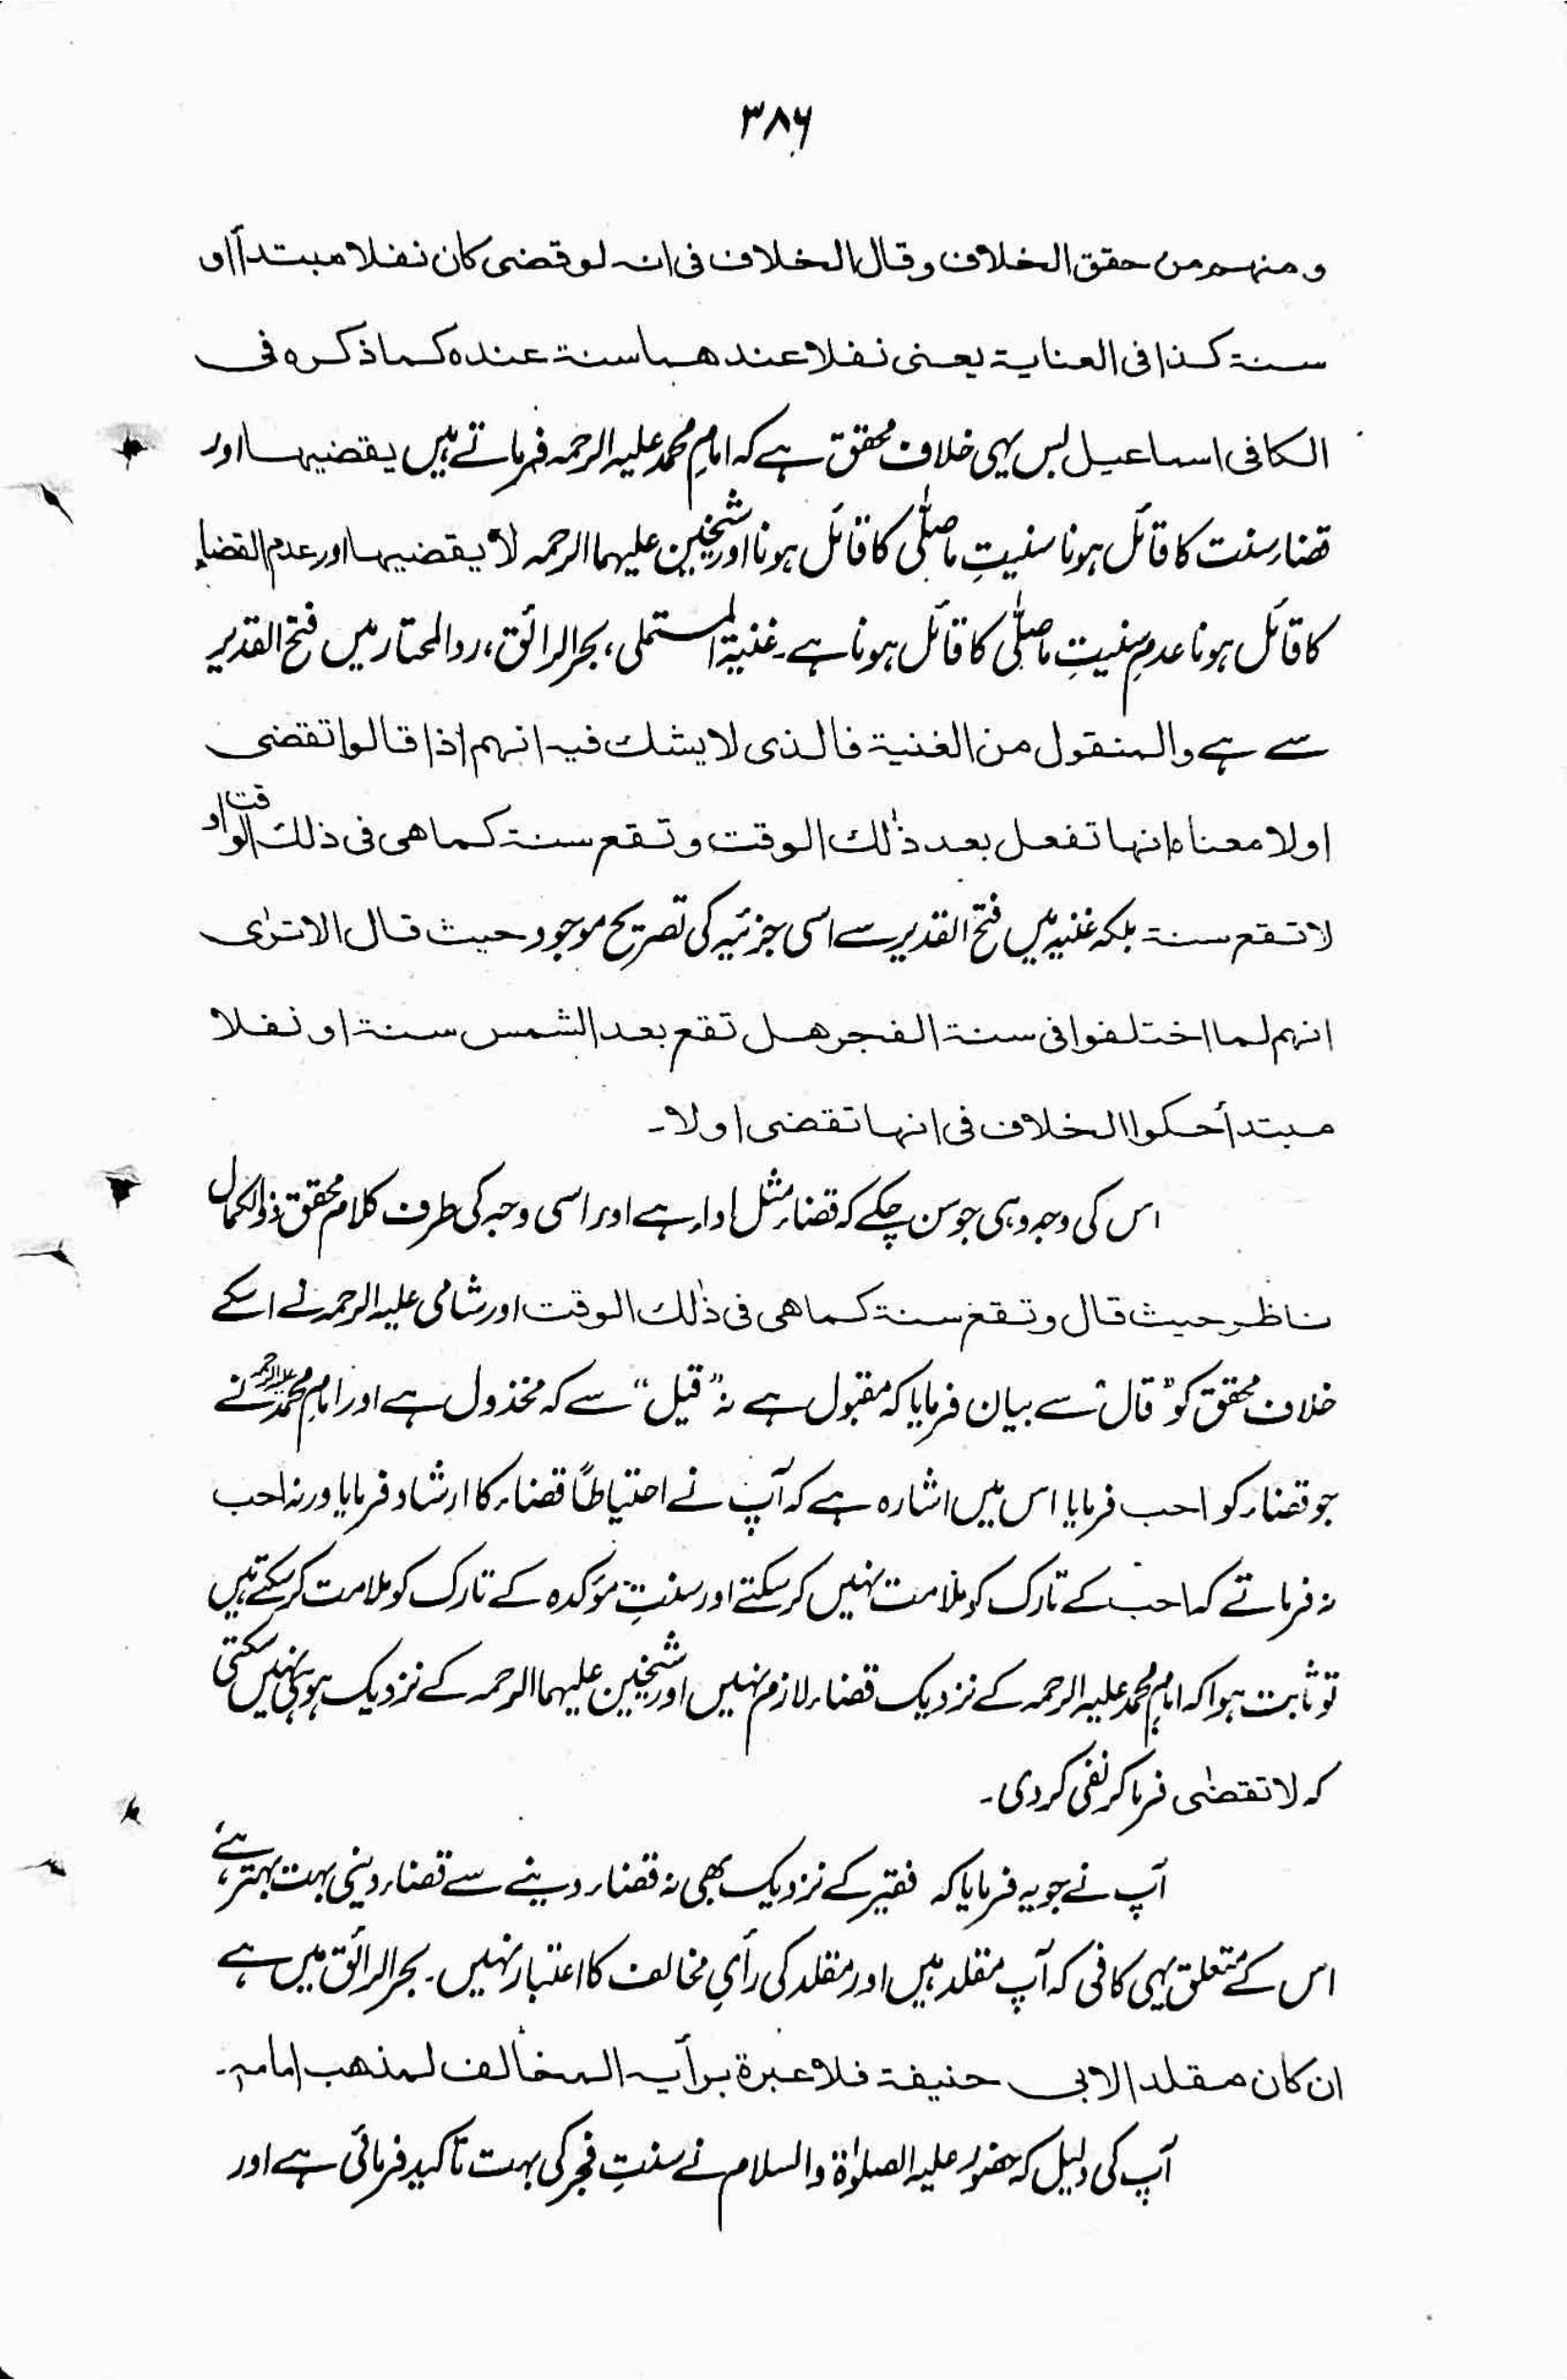 ۳۸۶
ومنہم من حقق الخلاف وقال الخلاف فی انہ لو قضی کان نفلا مبتدأ او
سنۃ کذا فی العنایۃ یعنی نفلا عندھما سنۃ عندہ کما ذکرہ فی
الکافی اسماعیل بس یہی خلاف محقق ہے کہ امامِ محمد علیہ الرحمہ فرماتے ہیں یقضیہا اور
قضاء سنت کا قائل ہونا سنیتِ ماصلّی کا قائل ہونا اور شیخین علیہما الرحمہ لا یقضیہا اور عدم القضاء
کا قائل ہونا عدمِ سنیتِ ماصلّی کا قائل ہونا ہے۔ غنیۃ المستملی، بحر الرائق، رد المحتار میں فتح القدیر
سے ہے والمنقول من الغنیۃ فالذی لا یشک فیہ انہم اذا قالوا تقضی
اولا معناہ انہا تفعل بعد ذٰلک الوقت و تقع سنۃ کما ھی فی ذلک الوقت او
لا تقع سنۃ بلکہ غنیہ میں فتح القدیر سے اسی جزئیہ کی تصریح موجود حیث قال الا ترٰی
انہم لما اختلفوا فی سنۃ الفجر ھل تقع بعد الشمس سنۃ او نفلا
مبتدأ حکوا الخلاف فی انہا تقضی اولا۔
اس کی وجہ وہی جو سن چکے کہ قضاء مثل اداء ہے اور اسی وجہ کی طرف کلام محقق ذو الکمال
ناظر حیث قال و تقع سنۃ کما ھی فی ذٰلک الوقت اور شامی علیہ الرحمہ نے اسکے
خلاف محقق کو "قال" سے بیان فرمایا کہ مقبول ہے نہ "قیل" سے کہ مخذول ہے اور امامِ محمد علیہ الرحمہ نے
جو قضاء کو احب فرمایا اس میں اشارہ ہے کہ آپ نے احتیاطًا قضاء کا ارشاد فرمایا ورنہ احب
نہ فرماتے کہ احب کے تارک کو ملامت نہیں کر سکتے اور سنتِ مؤکدہ کے تارک کو ملامت کر سکتے ہیں
تو ثابت ہوا کہ امامِ محمد علیہ الرحمہ کے نزدیک قضاء لازم نہیں اور شیخین علیہما الرحمہ کے نزدیک ہو ہی نہیں سکتی
کہ لا تقضٰی فرما کر نفی کر دی۔
آپ نے جو یہ فرمایا کہ فقیر کے نزدیک بھی نہ قضاء دینے سے قضاء دینی بہت بہتر ہے،
اس کے متعلق یہی کافی کہ آپ مقلد ہیں اور مقلد کی رأیِ مخالف کا اعتبار نہیں۔ بحر الرائق میں ہے
ان کان مقلدا لابی حنیفۃ فلا عبرۃ برأیہ المخالف لمذھب امامہ۔
آپ کی دلیل کہ حضور علیہ الصلوٰۃ والسلام نے سنتِ فجر کی بہت تاکید فرمائی ہے اور